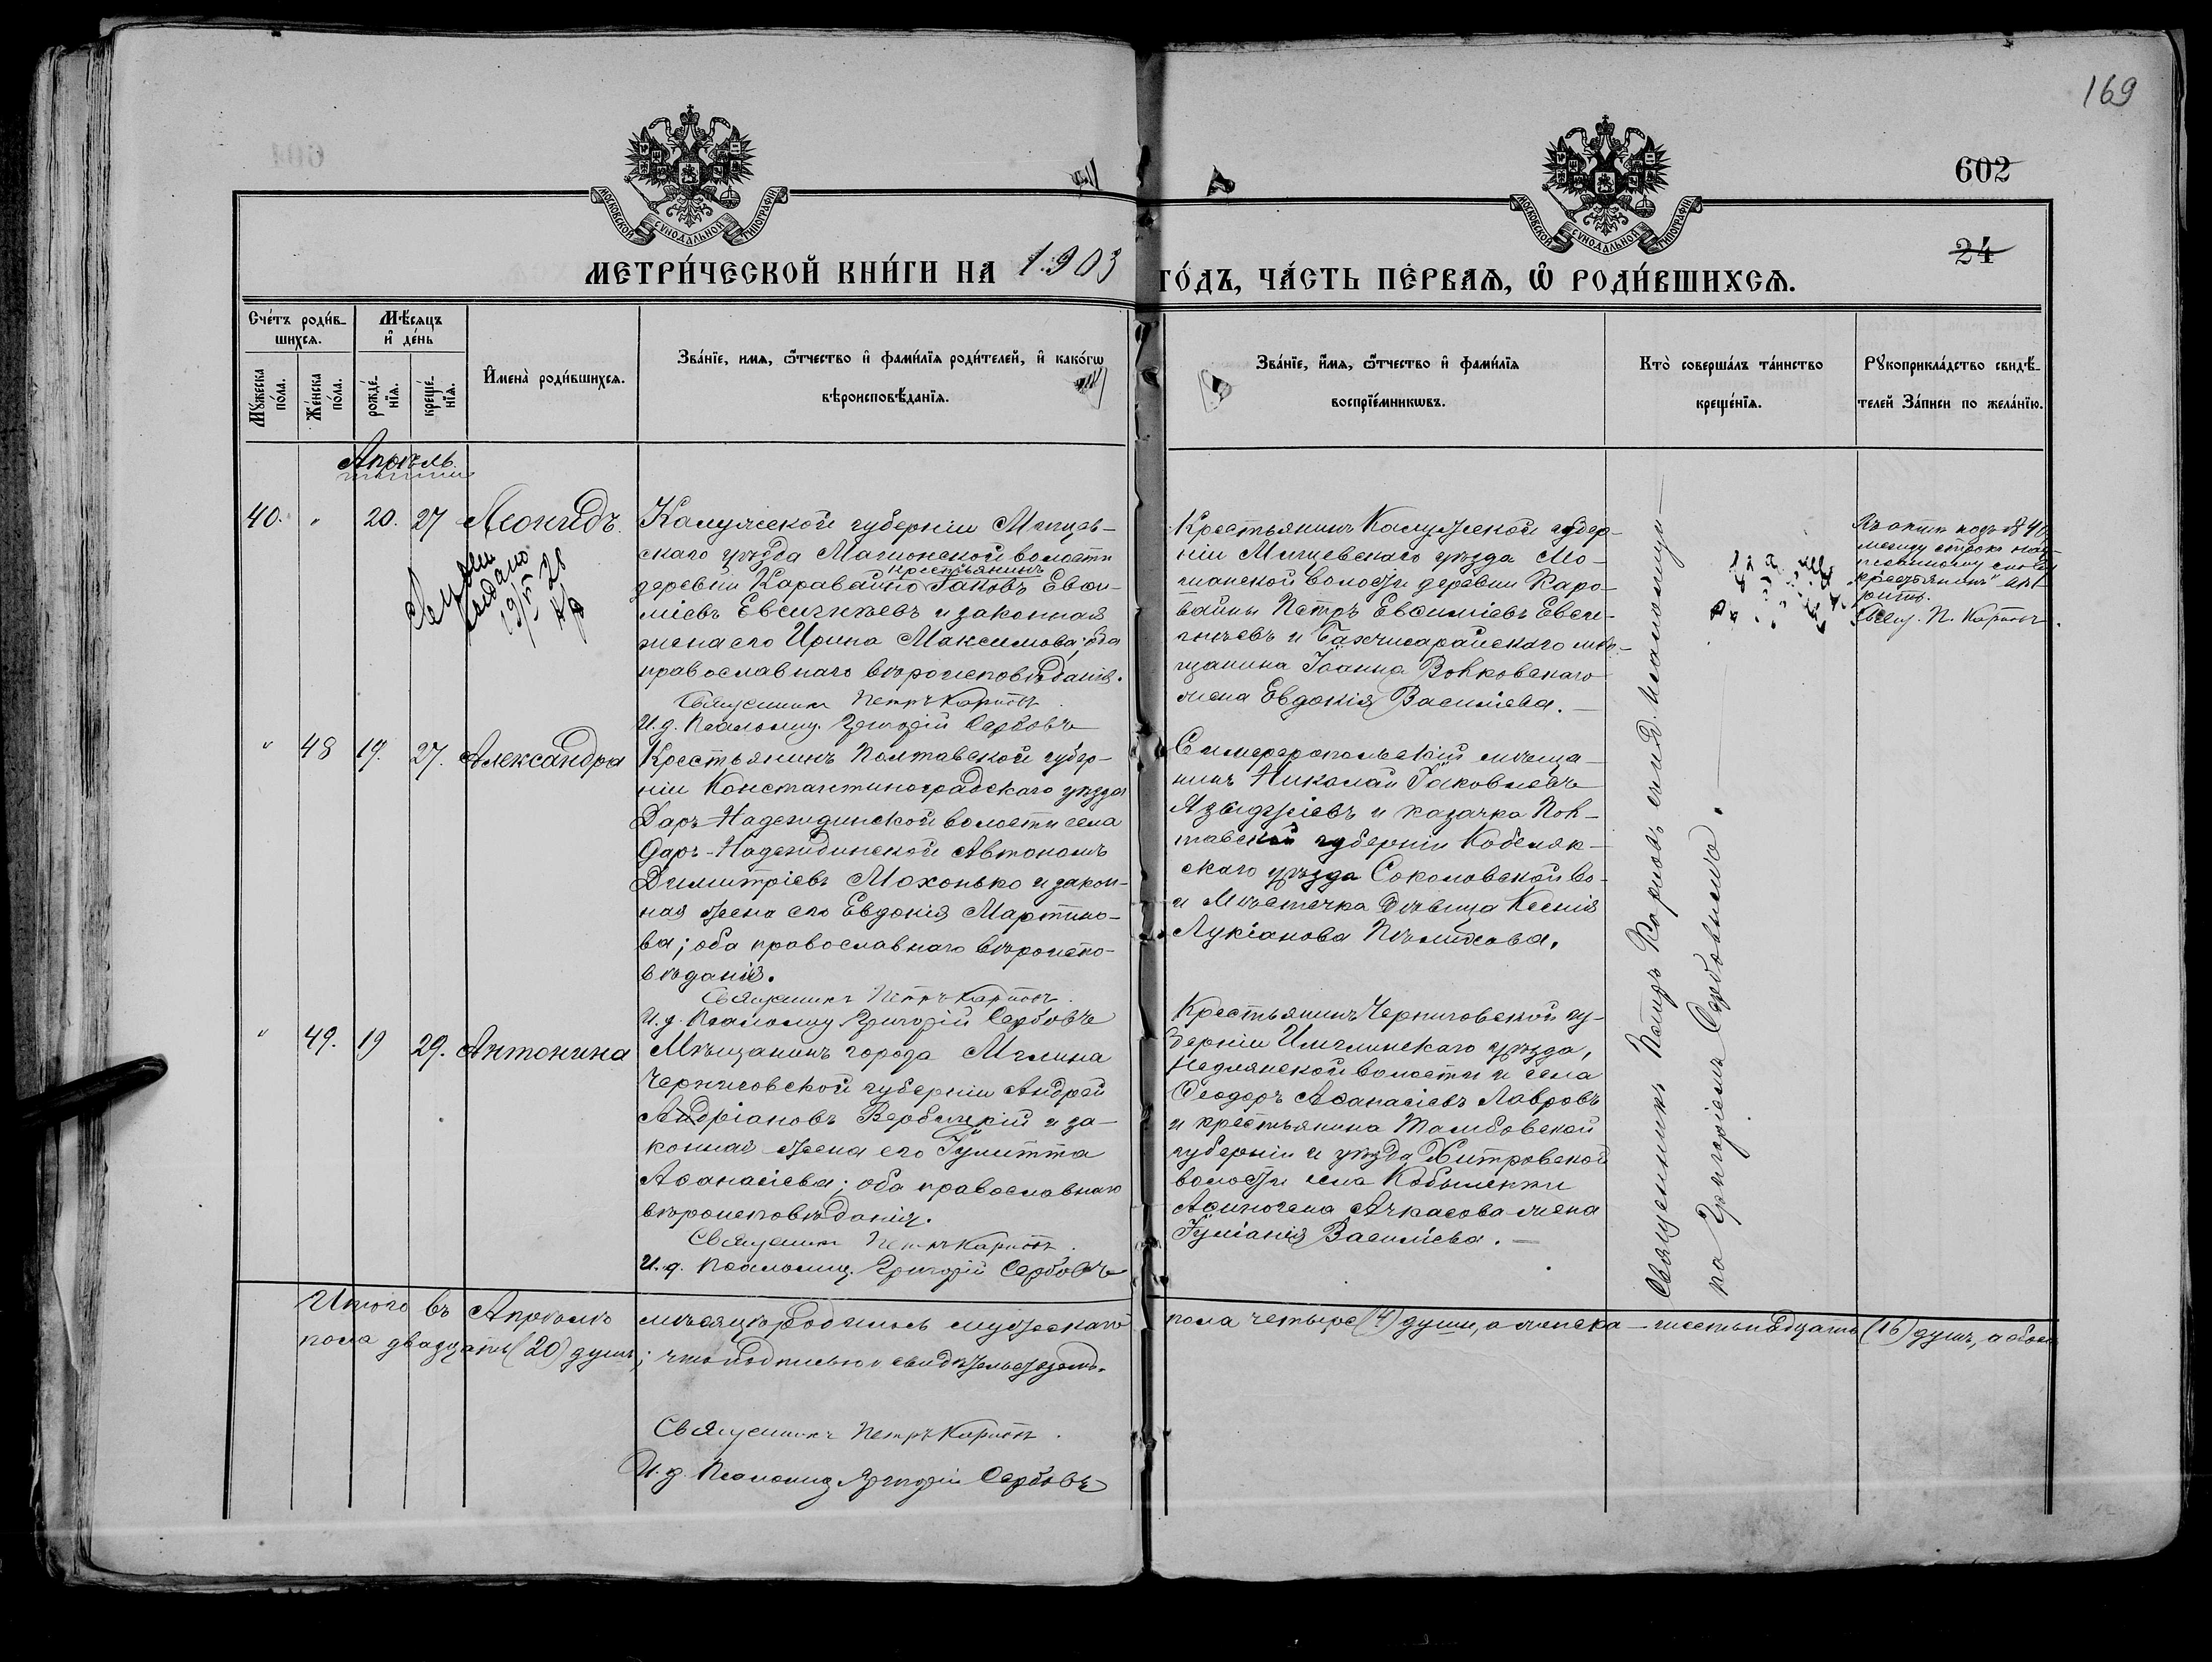 169
602
24
МОСКОВСКОЙ СѴНОДАЛЬНОЙ ТИПОГРАФІИ
МОСКОВСКОЙ СѴНОДАЛЬНОЙ ТИПОГРАФІИ
МЕТРИ́ЧЕСКОЙ КНИ́ГИ НА 1903 ГО́ДЪ, ЧА́СТЬ ПЕ́РВАѦ, Ѡ РОДИ́ВШИХСѦ.
Сче́тъ роди́в-
шихсѧ.
Мѣ́сѧцъ
и де́нь
Мꙋ́жеска
по́ла.
Же́нска
по́ла.
рожде́-
нїѧ.
креще́-
нїѧ.
Имена̀ роди́вшихсѧ.
Зва́нїе, имѧ, ѻ́тчество и фами́лїѧ роди́телей, и како́гѡ
вѣроисповѣ́данїѧ.
Зва́нїе, и́мѧ, ѻ́тчество и фами́лїѧ
воспрїе́мникѡвъ.
Кто̀ соверша́лъ та́инство
креще́нїѧ.
Рꙋкоприкла́дство свидѣ́-
телей За́писи по жела́нїю.
Апрѣль
40. " 20. 27 Леонидъ.
Калужской губерніи Мещев-
скаго уѣзда волости
крестьянинъ
деревни Караваино Іаковъ Евѳи-
міевъ Евсигнѣевъ и законная
жена его Ирина Максимова; оба
православнаго вѣроисповѣданія.
Священникъ Петръ Карповъ
И. д. Псаломщ. Григорій Сербовъ
выдано
19/V 28
Крестьянинъ Калужской губер-
ніи Мещевскаго уѣзда Мо-
волости деревни Кара-
ваины Петръ Евѳиміевъ Евси-
гнѣевъ и Бахчисарайскаго мѣ-
щанина Іоанна Волковскаго
жена Евдокія Василіева. —
Священникъ Петръ Карповъ съ и.д. псаломщи-
ка Григоріемъ Сербовымъ.
Въ актѣ подъ № 40
между строкъ над-
писанному слову
"крестьянинъ"
рить.
Свящ. П. Карповъ.
" 48 19. 27. Александра
Крестьянинъ Полтавской губер-
ніи Константиноградскаго уѣзда
Даръ-Надеждинской волости села
Даръ-Надеждинской Автономъ
Димитріевъ Махонько и закон-
ная жена его Евдокія Мартино-
ва; оба православнаго вѣроиспо-
вѣданія.
Священникъ Петръ Карповъ
И. д. Псаломщ Григорій Сербовъ
Симферопольскій мѣща-
нинъ Николай Іаковлевъ
и казачка Пол-
тавской губерніи Кобеляк-
скаго уѣзда Соколовской во-
и Мѣстечка дѣвица Ксенія
Лукіанова
" 49. 19 29. Антонина
Мѣщанинъ города Мглина
Черниговской губерніи Андрей
Андріановъ Вербицкій и за-
конная жена его Іулитта
Аѳанасіева; оба православнаго
вѣроисповѣданія.
Священникъ Петръ Карповъ
И. д. Псаломщ. Григорій Сербовъ
Крестьянинъ Черниговской гу-
берніи Имглинскаго уѣзда,
волости и села
Ѳеодоръ Аѳанасіевъ Лавровъ
и крестьянина Тамбовской
губерніи и уѣзда Хитровской
волости села
Аѳиногена Ачкасова жена
Іуліанія Василіева. —
Итого въ Апрѣлѣ мѣсяцѣ родилось мужескаго пола четыре (4) души, а женска — шестьнадцать (16) душъ, а обоего
пола двадцать (20) душъ; что подписью и свидѣтельствуемъ.
Священникъ Петръ Карповъ.
И. д. Псаломщ Григорій Сербовъ